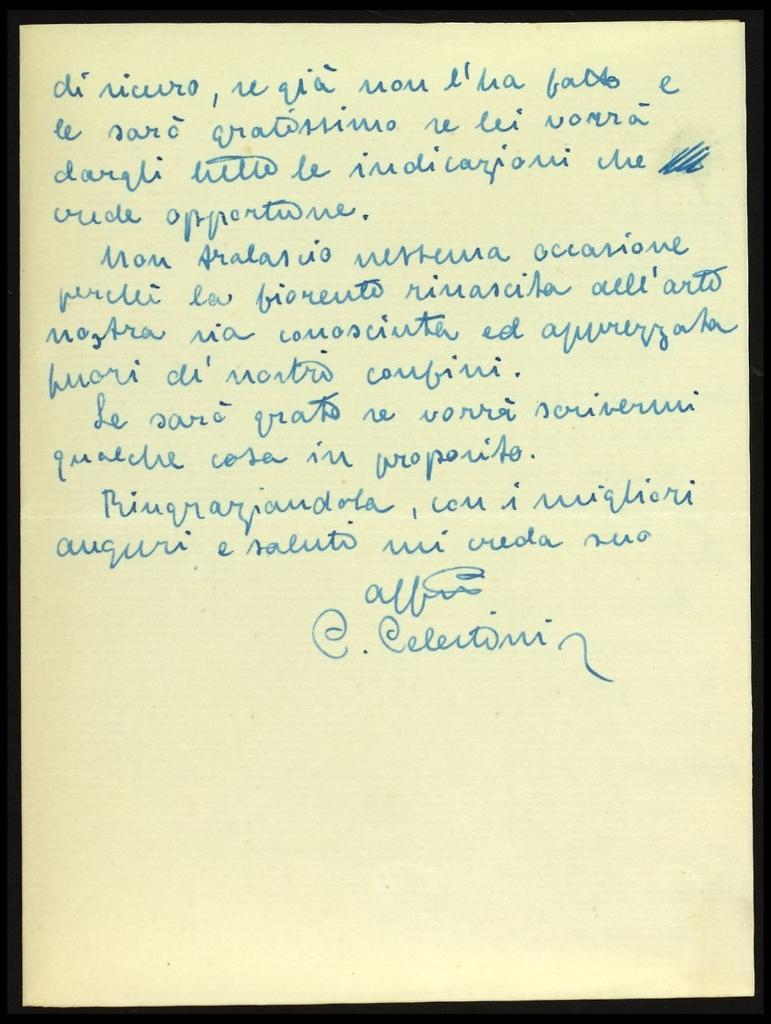 di sicuro, se già non l'ha fatto e
le sarò gratissimo se lei vorrà
dargli tutte le indicazioni che
crede opportune.
Non tralascio nessuna occasione
perchè la fiorente rinascita dell'arte
nostra sia conosciuta ed apprezzata
fuori di' nostri confini.
Le sarò grato se vorrà scrivermi
qualche cosa in proposito.
Ringraziandola, con i migliori
auguri e saluti mi creda suo
aff.mo
C. Celestini